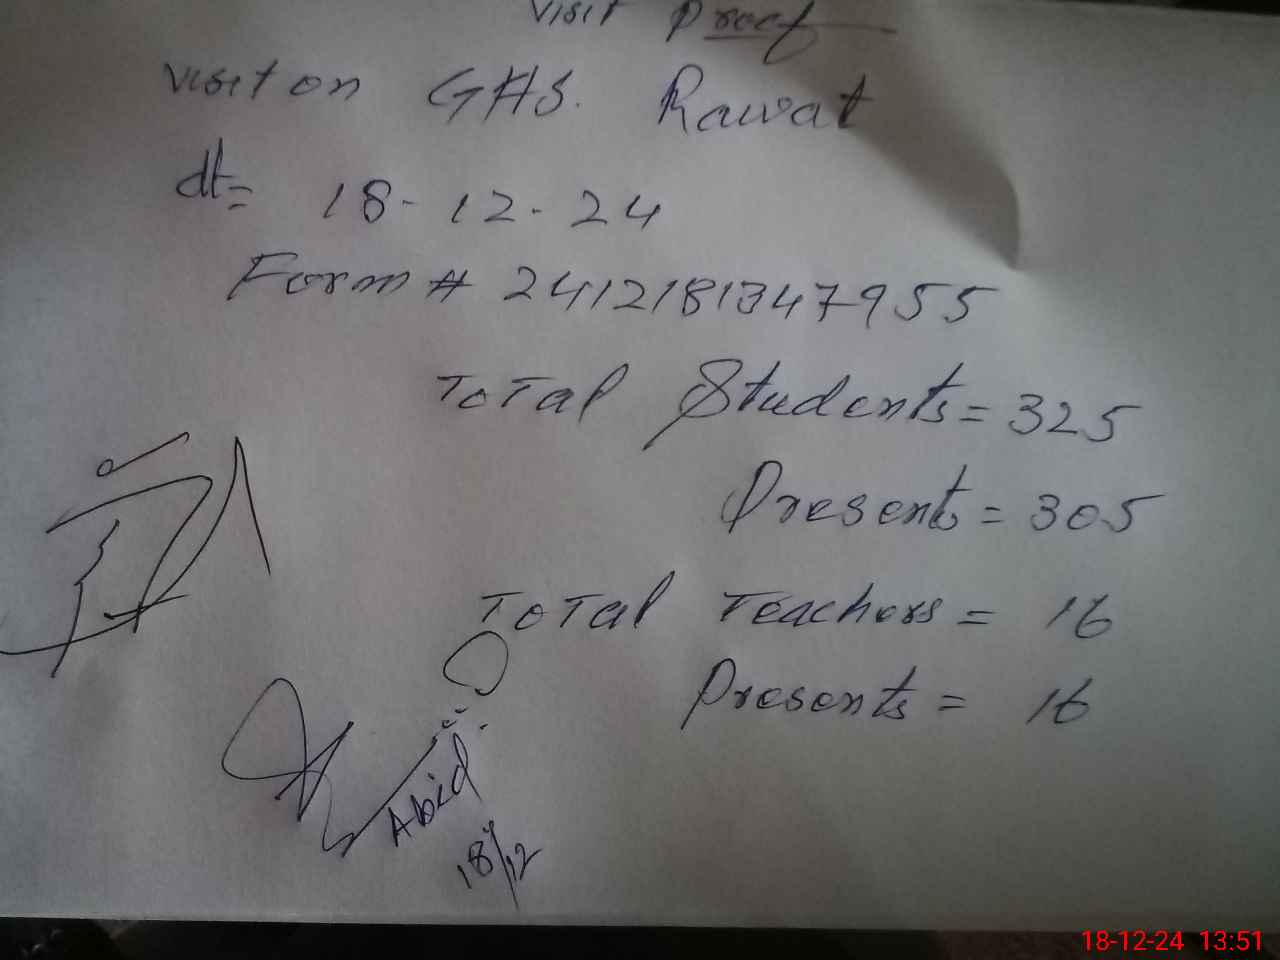 Visit Proof
Visit on GHS. Rawat
dt= 18-12-24
Form # 2412181347955
Total Students = 325
Presents = 305
Total Teachers = 16
Presents = 16
Abid
18/12
18-12-24 13:51